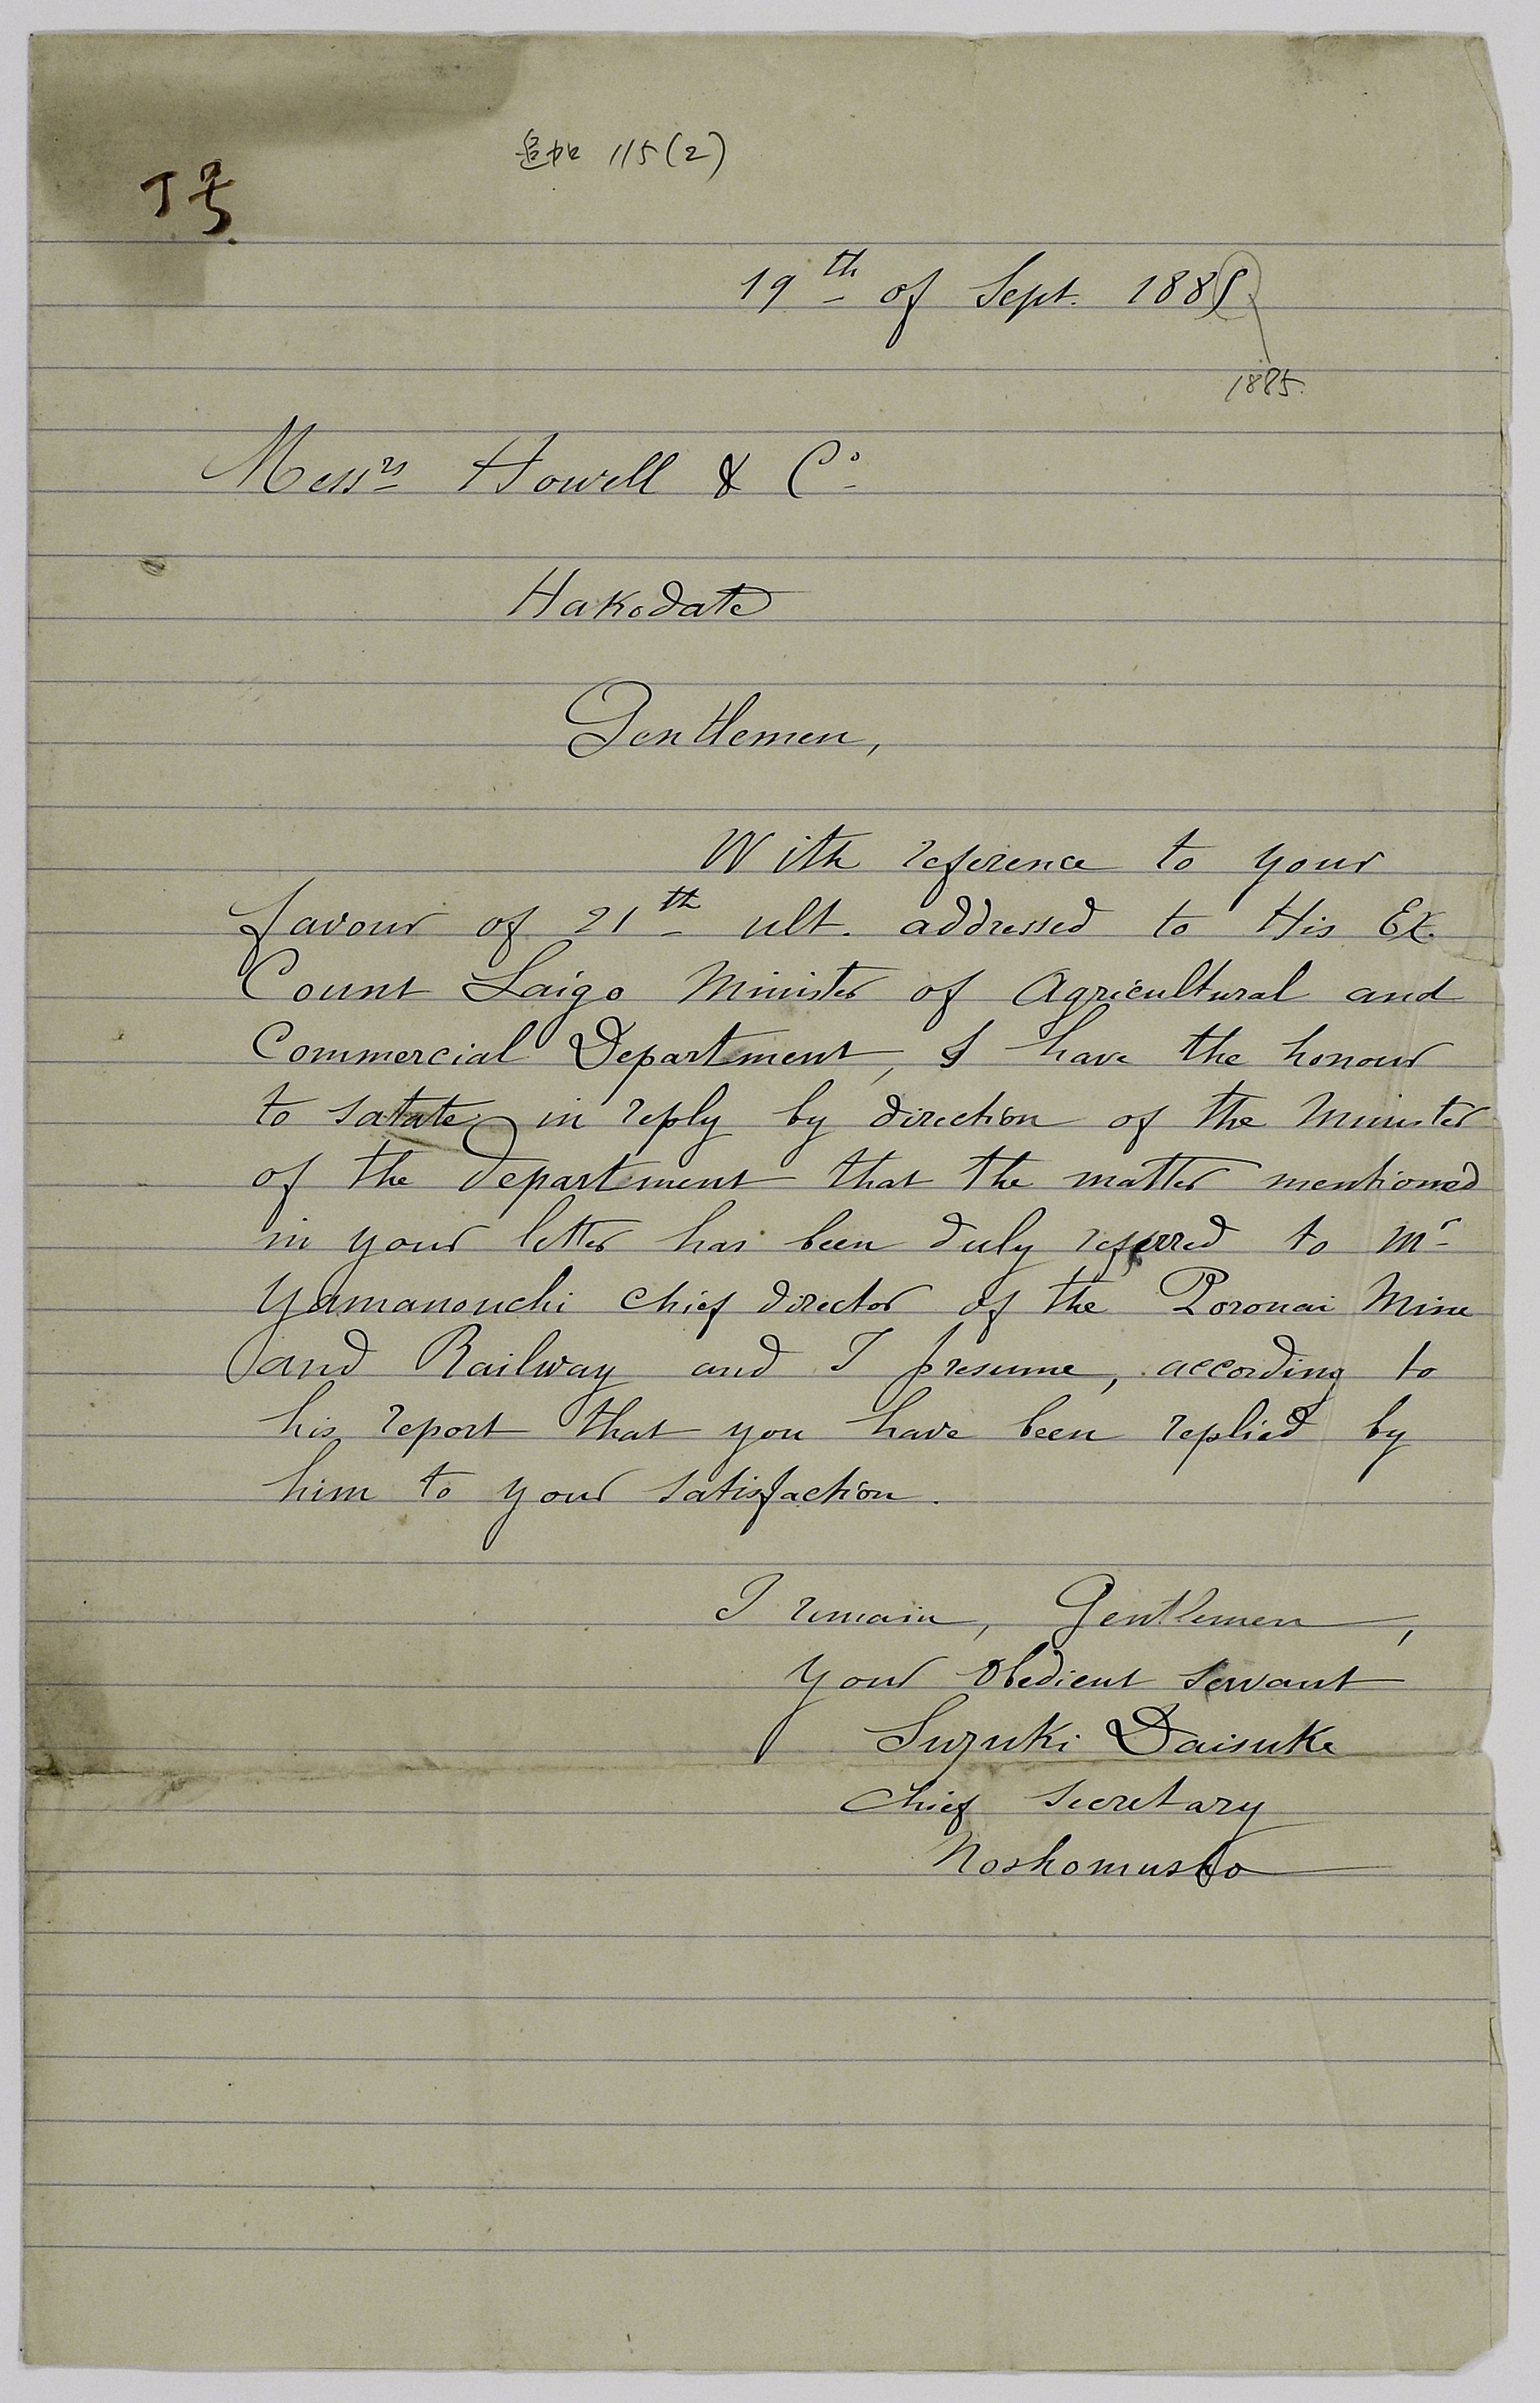 追加 115(2)
丁号
19th of Sept. 1885
1885.
Messrs Howell & Co
Hakodate
Gentlemen,
With reference to your
favour of 21th ult. addressed to His Ex.
Count Saigo Minister of Agricultural and
Commercial Department, I have the honour
to satate in reply by direction of the Minister
of the department that the matter mentioned
in your letter has been duly referred to Mr
Yamanouchi chief director of the Poronai Mine
and Railway and I presume, according to
his report that you have been replied by
him to your satisfaction.
I remain, Gentlemen,
Your Obedient Servant
Suzuki Daisuke
Chief Secretary
Noshomusho